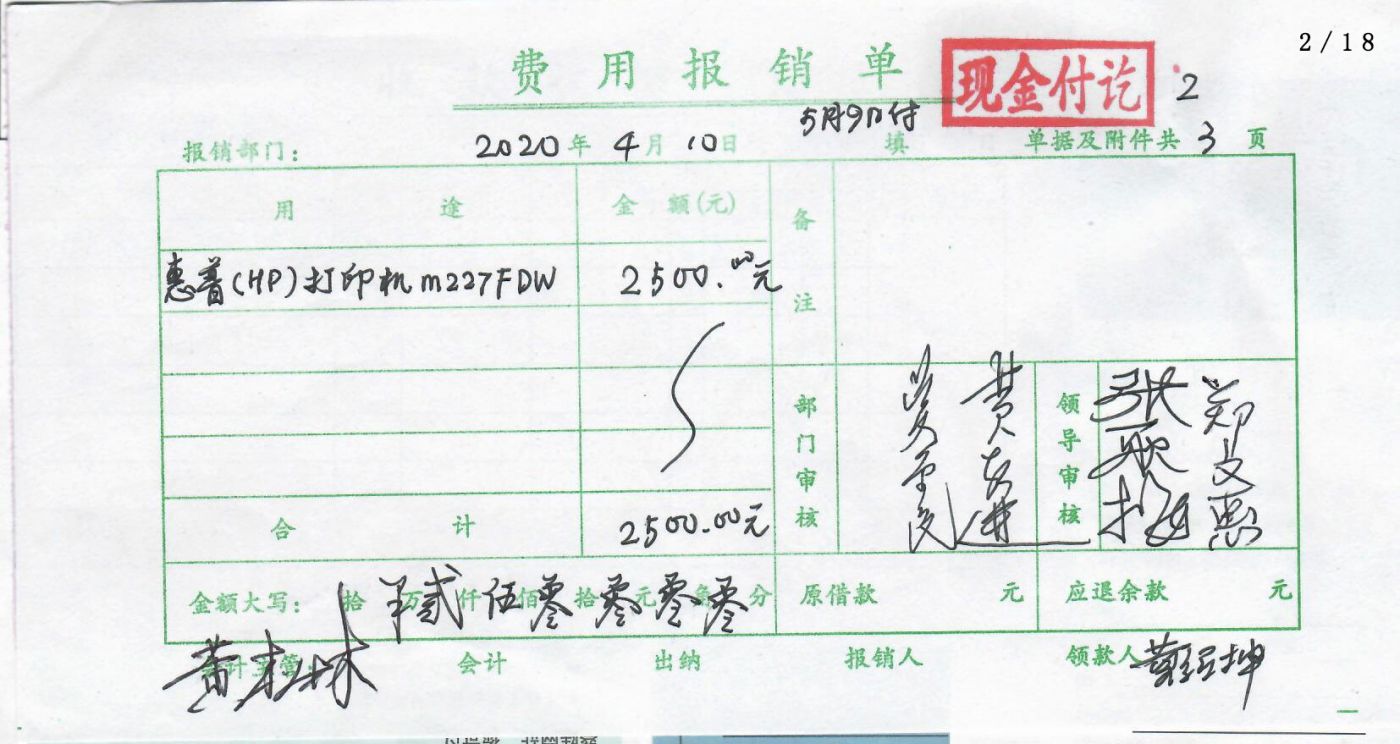 2/18
费用报销单 现金付讫 2
5月9日付
报销部门: 2020年4月10日 填 单据及附件共3页
用途 金额(元) 备注
惠普(HP)打印机m227FDW 2500.00元
部门审核 领导审核
合计 2500.00元
金额大写: 拾万 贰仟伍佰零拾零元零角零分 原借款 元 应退余款 元
会计主管: 会计 出纳 报销人 领款人